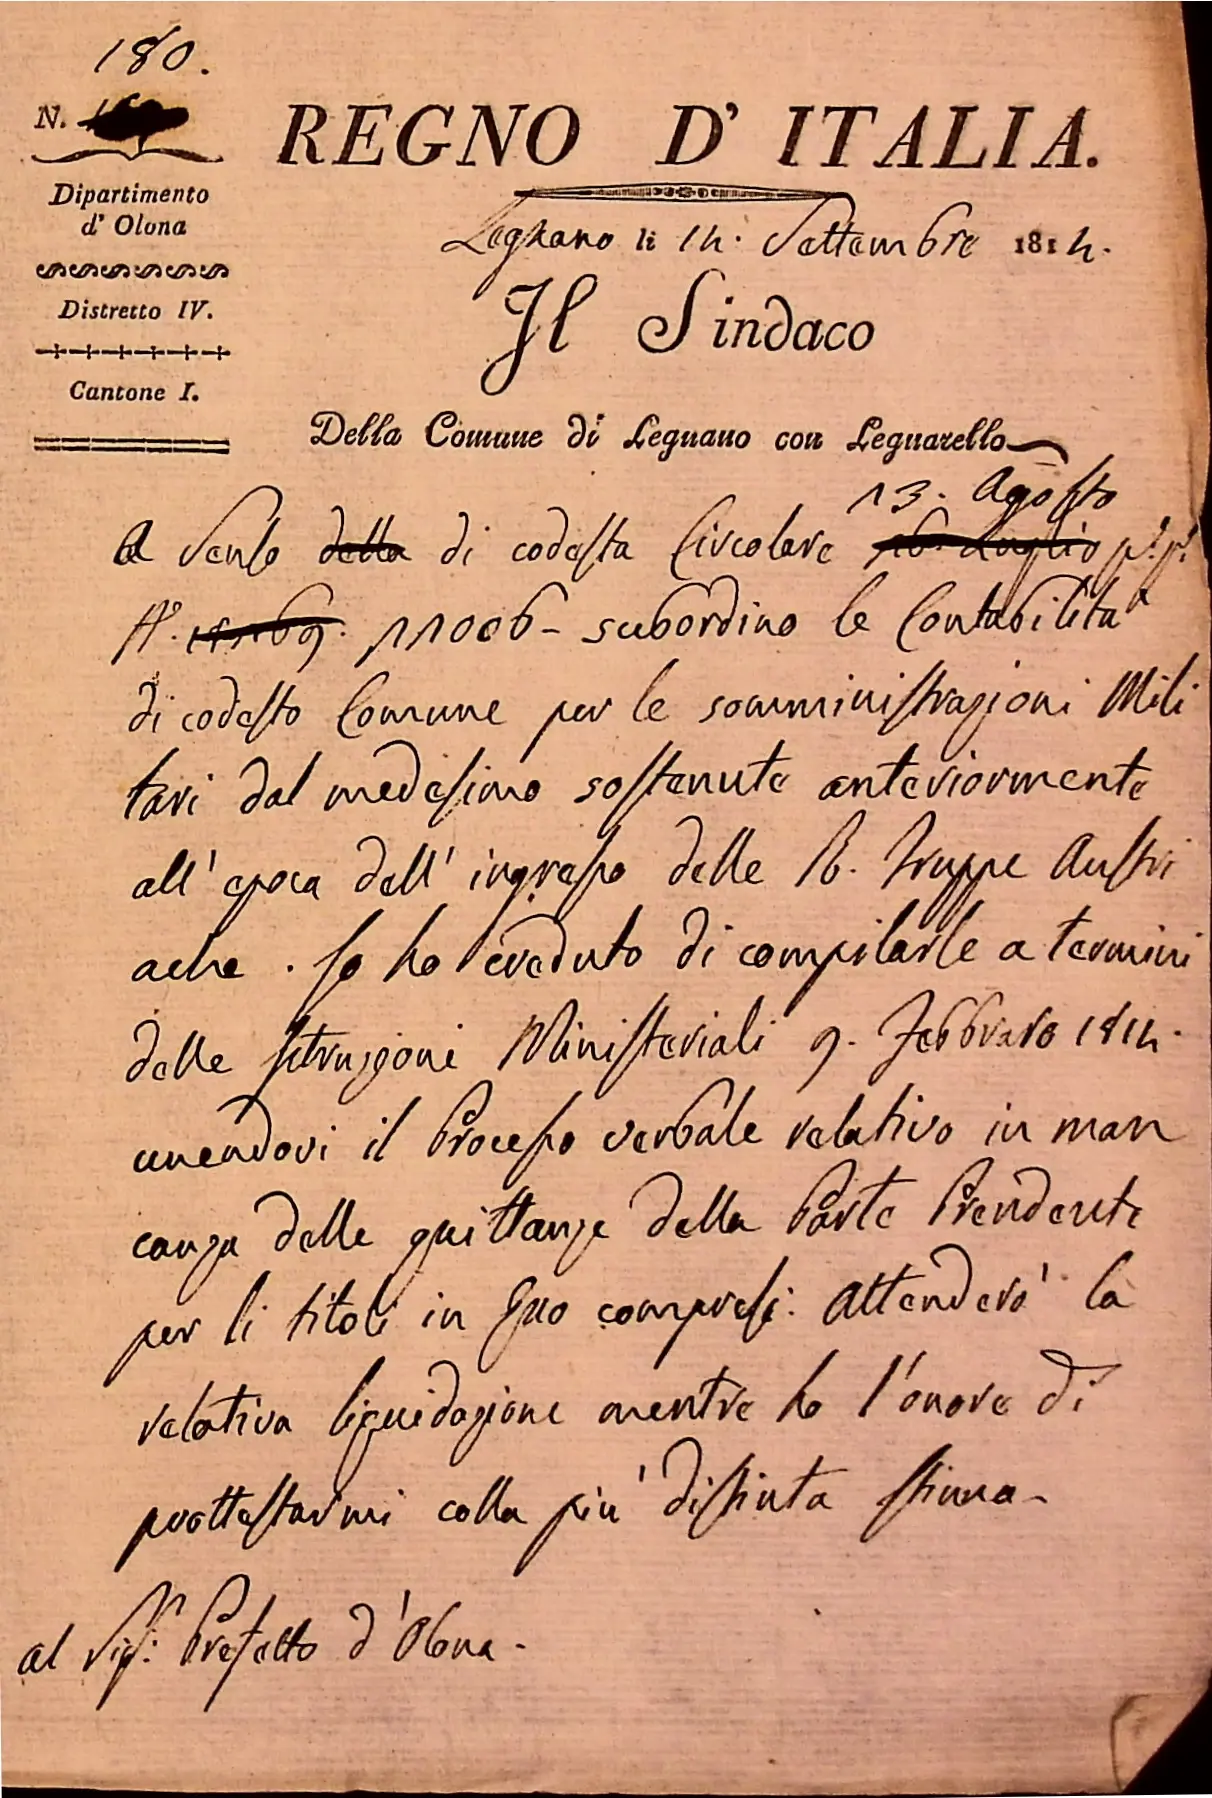 180.
N.
REGNO D' ITALIA.
Dipartimento
d' Olona
Distretto IV.
Cantone I.
Legnano li 14. Settembre 1814.
Il Sindaco
Della Comune di Legnano con Legnarello
13. Agosto
A Senso della di codesta Circolare 26. Luglio p.º p.º
N.º 11006 - subordino le Contabilità
di codesto Comune per le somministrazioni Mili
tari dal medesimo sostenute anteriormente
all' epoca dell' ingresso delle R. Truppe Austri
ache. Io ho creduto di compilarle a termini
delle Istruzioni Ministeriali 9. Febbraro 1814.
unendovi il Processo verbale relativo in man
canza delle quittanze della Parte Prendente
per li titoli in Esso compresi. Attenderò la
relativa liquidazione mentre ho l'onore di
prottestarmi colla più distinta stima -
al Sig.r Prefetto d'Olona -